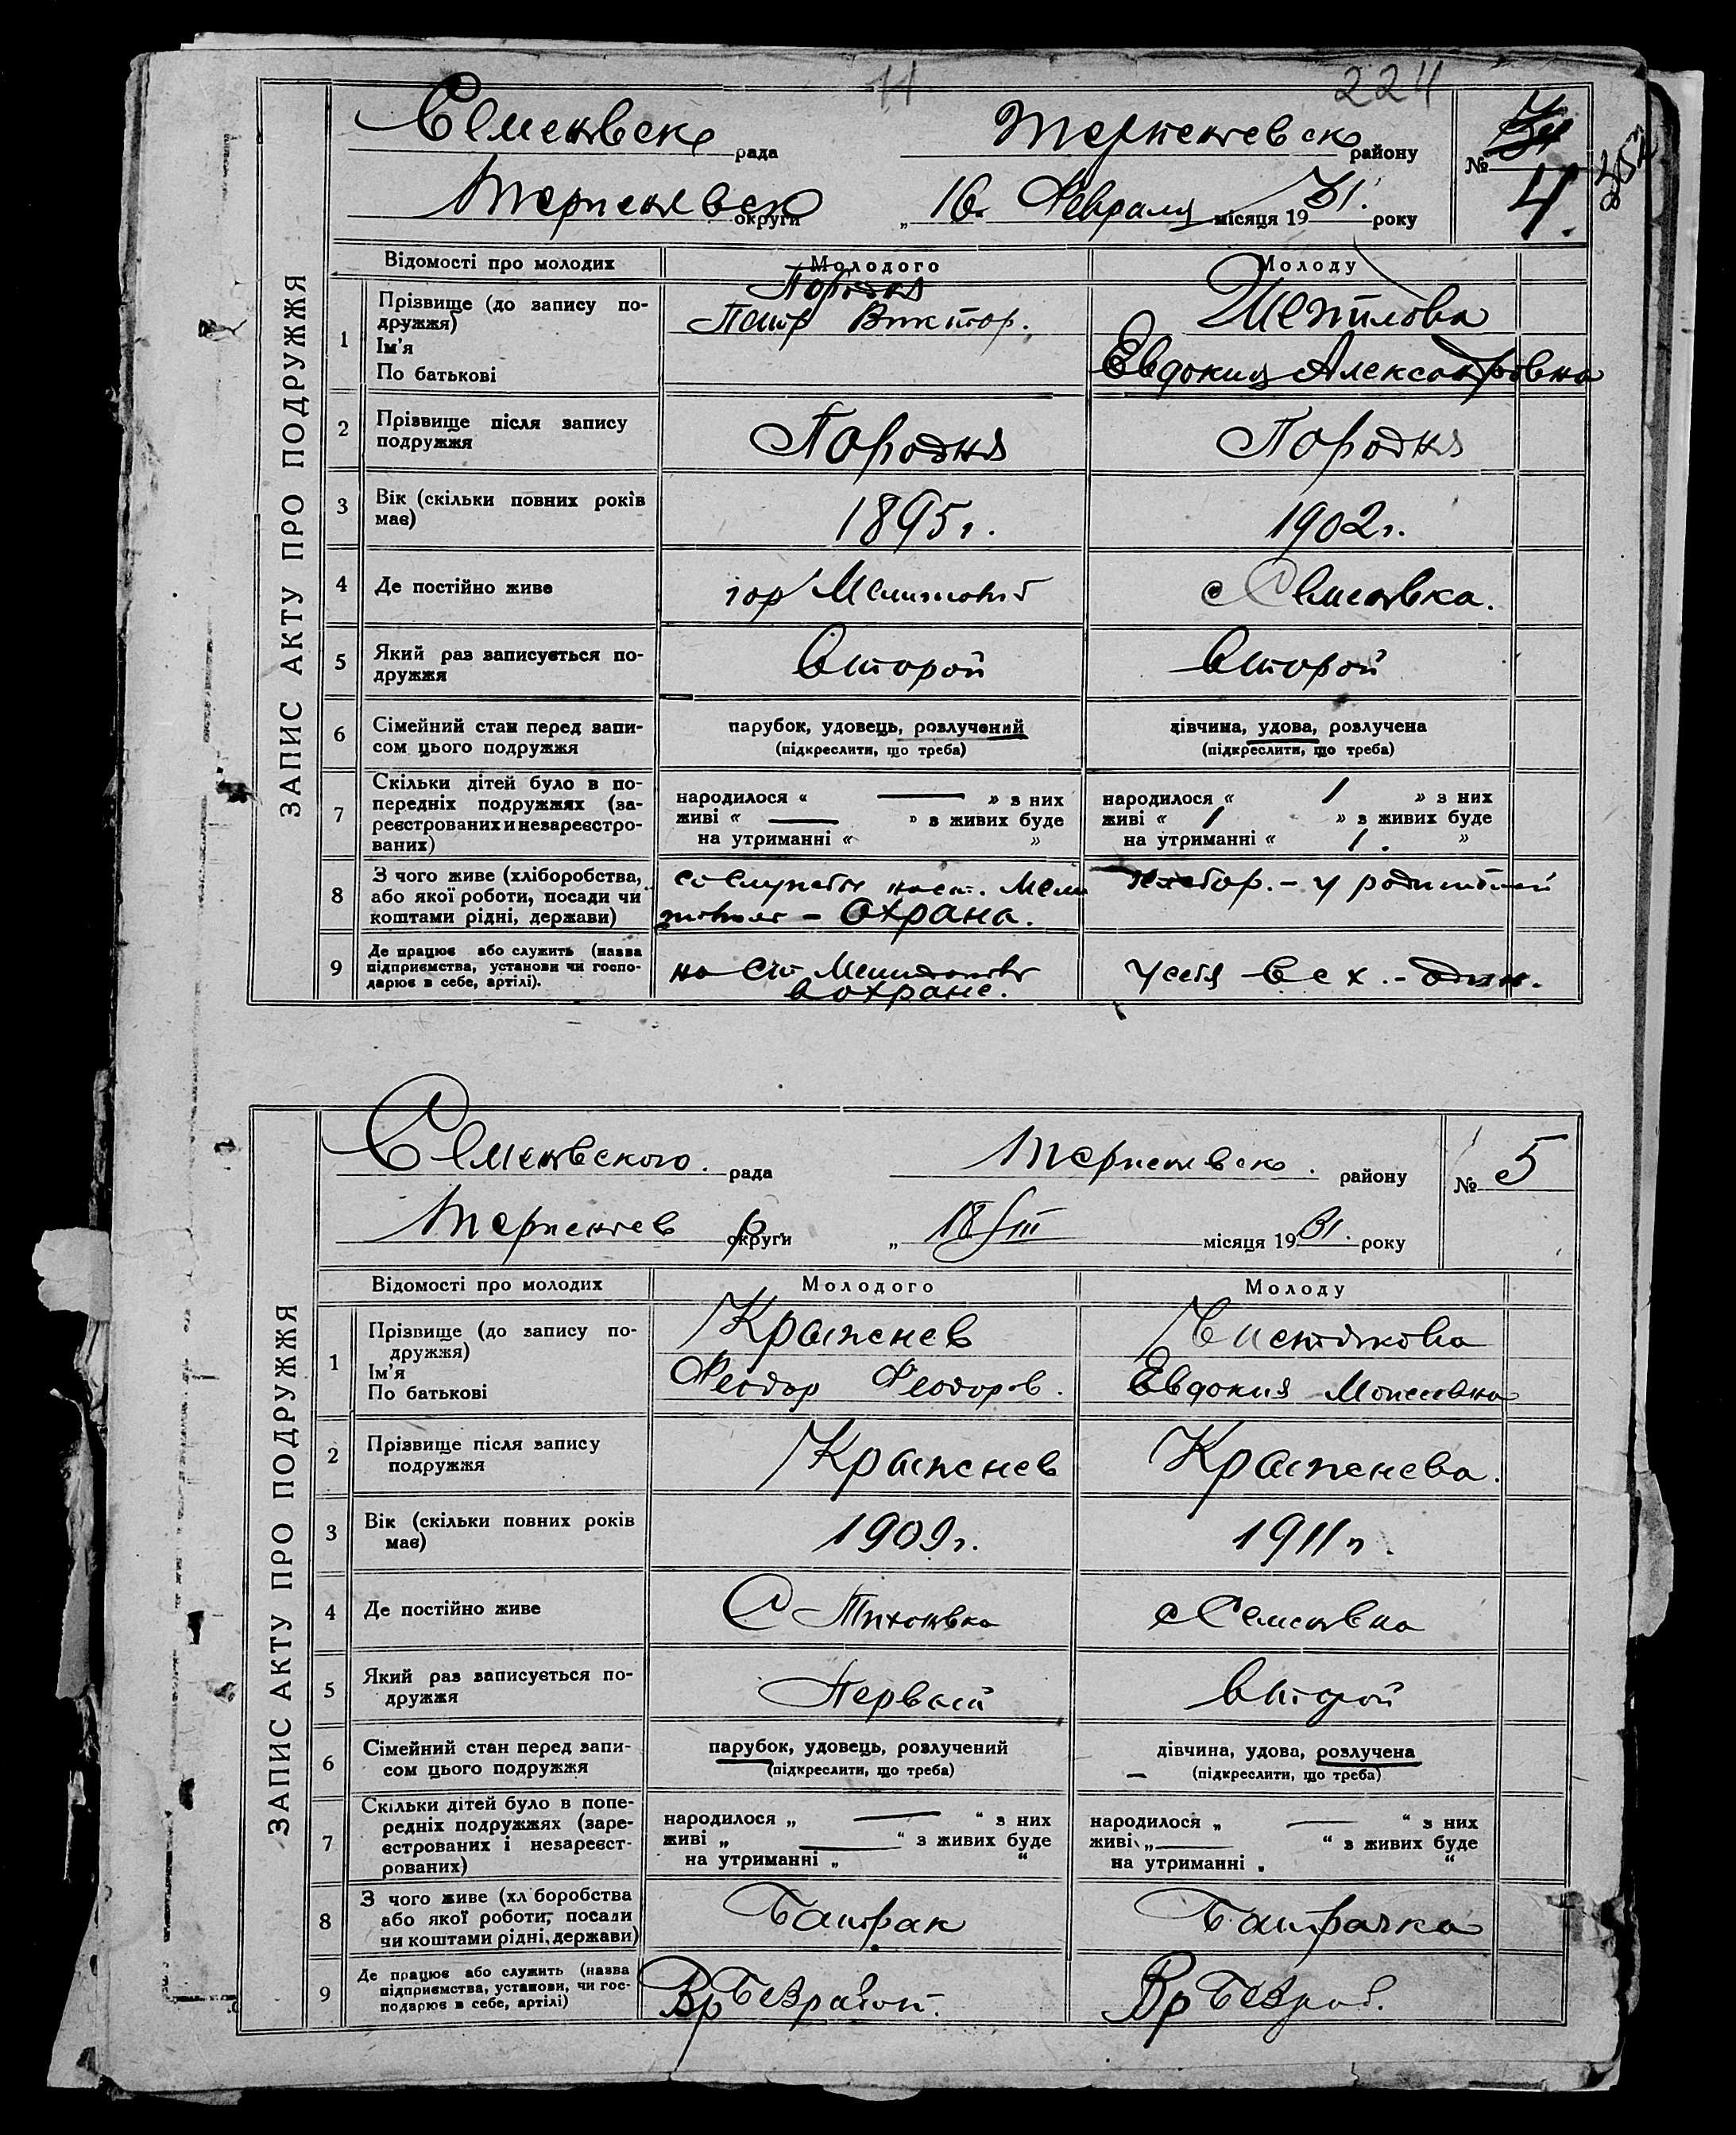 11 224
Семеновск рада Терпеневск району № 4.
Терпеневск округи „ 16 Февраля місяця 1931. року
ЗАПИС АКТУ ПРО ПОДРУЖЖЯ
Відомості про молодих Молодого Молоду
1 Прізвище (до запису по- Породня
дружжя) Петр Виктор.
Ім'я
По батькові Евдокия Александровна
2 Прізвище після запису
подружжя Породня Породня
3 Вік (скільки повних років
має) 1895 г. 1902 г.
4 Де постійно живе гор Мелитополь с Семеновка.
5 Який раз записується по-
дружжя Второй Второй
6 Сімейний стан перед запи- парубок, удовець, розлучений дівчина, удова, розлучена
сом цього подружжя (підкреслити, що треба) (підкреслити, що треба)
7 Скільки дітей було в по-
передніх подружжях (за-
реєстрованих и незареєстро-
ваних)
народилося « — » з них народилося « 1 » з них
живі « — » з живих буде живі « 1 » з живих буде
на утриманні « » на утриманні « 1. »
8 З чого живе (хліборобства,
або якої роботи, посади чи
коштами рідні, держави)
со службы на ст. Мели хлебор. - у родителей
тополь - охрана.
9 Де працює або служить (назва
підприємства, установи чи госпо-
дарює в себе, артілі).
на ст Мелитополь у себя в с х. - один.
в охране.
ЗАПИС АКТУ ПРО ПОДРУЖЖЯ
Семеновского. рада Терпеневск. району № 5
Терпенев р. округи „ 18/III місяця 1931. року
Відомості про молодих Молодого Молоду
1 Прізвище (до запису по-
дружжя) Крыженев Чистякова
Ім'я
По батькові Феодор Феодоров. Евдокия Моисеевна
2 Прізвище після запису
подружжя Крыженев Крыженева.
3 Вік (скільки повних років
має) 1909 г. 1911 г.
4 Де постійно живе С Тихоновка с Семеновка
5 Який раз записується по-
дружжя Первый Второй
6 Сімейний стан перед запи- парубок, удовець, розлучений дівчина, удова, розлучена
сом цього подружжя (підкреслити, що треба) (підкреслити, що треба)
7 Скільки дітей було в попе-
редніх подружжях (заре-
єстрованих і незареєст-
рованих)
народилося „ — “ з них народилося „ — “ з них
живі „ — “ з живих буде живі „ — “ з живих буде
на утриманні „ “ на утриманні „ “
8 З чого живе (хл боробства
або якої роботи, посади
чи коштами рідні, держави)
Батрак Батрачка
9 Де працює або служить (назва
підприємства, установи, чи гос-
подарює в себе, артілі)
Вр Безработ. Вр Безраб.